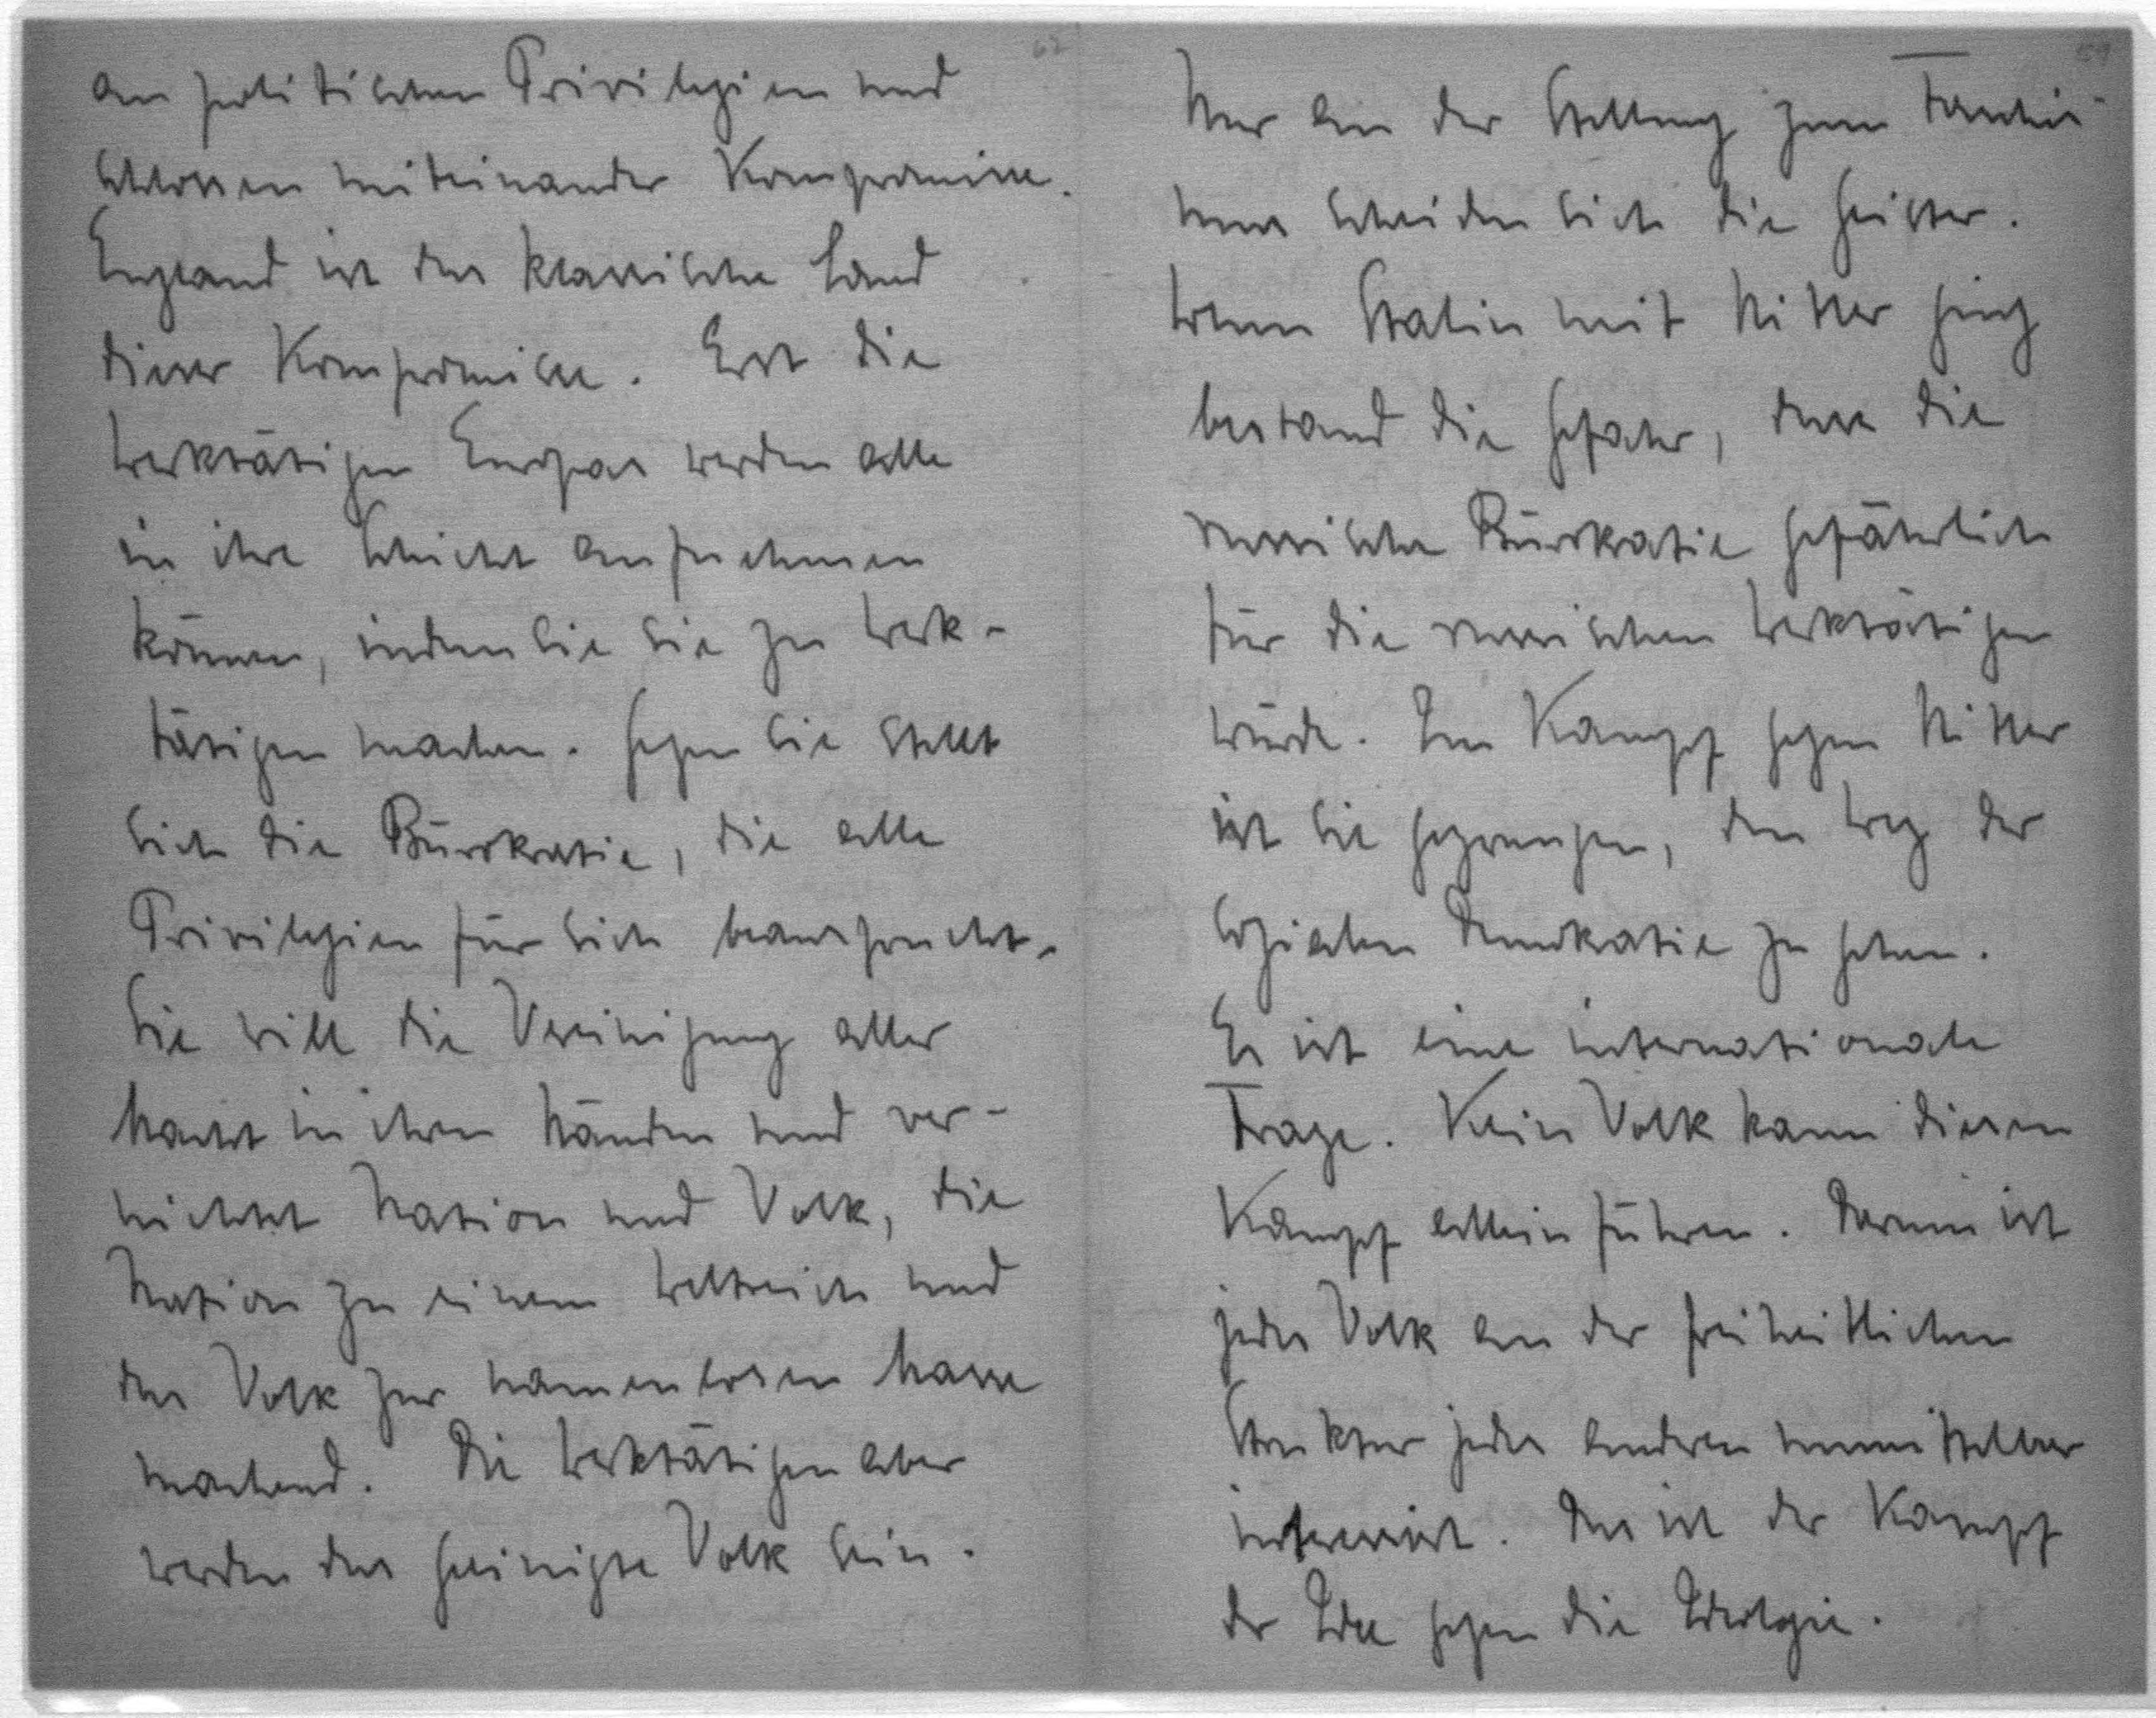 62
an politischen Privilegien und
schlossen miteinander Kompromisse.
England ist das klassische Land
dieser Kompromisse. Erst die
Werktätigen Europas werden alle
in ihre Schicht aufnehmen
können, indem sie sie zu Werk-
tätigen machen. Gegen sie stellt
sich die Bürokratie, die alle
Privilegien für sich beansprucht.
Sie will die Vereinigung aller
Macht in ihren Händen und ver-
nichtet Nation und Volk, die
Nation zu einem Weltreich und
das Volk zur namenlosen Masse
machend. Die Werktätigen aber
werden das geeinigte Volk sein.
59
Nur an der Stellung zum Faschis-
mus scheiden sich die Geister.
Wenn Stalin mit Hitler ging
bestand die Gefahr, dass die
russische Bürokratie gefährlich
für die russischen Werktätigen
würde. Im Kampf gegen Hitler
ist sie gezwungen, den Weg der
sozialen Demokratie zu gehen.
Es ist eine internationale
Frage. Kein Volk kann diesen
Kampf allein führen. Darum ist
jedes Volk an der freiheitlichen
Struktur jedes anderen unmittelbar
interessiert. Das ist der Kampf
der Idee gegen die Ideologie.